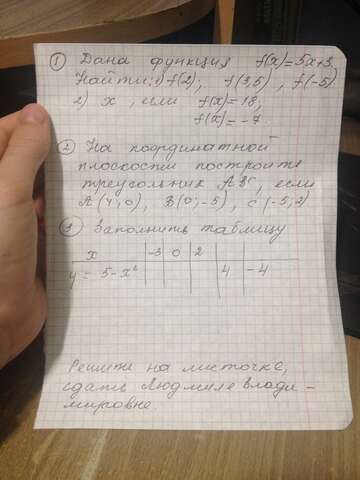 ① Дана функция f(x)=5x+3.
Найти: 1) f(2); f(3,5), f(-5)
2) x, если f(x)=18,
f(x)=-7.
② На координатной
плоскости построить
треугольник ABC, если
A(4;0), B(0;-5), C(-5;2)
③ Заполнить таблицу
x -3 0 2
y = 5-x² 4 -4
Решить на листочке,
сдать Людмиле Влади-
мировне